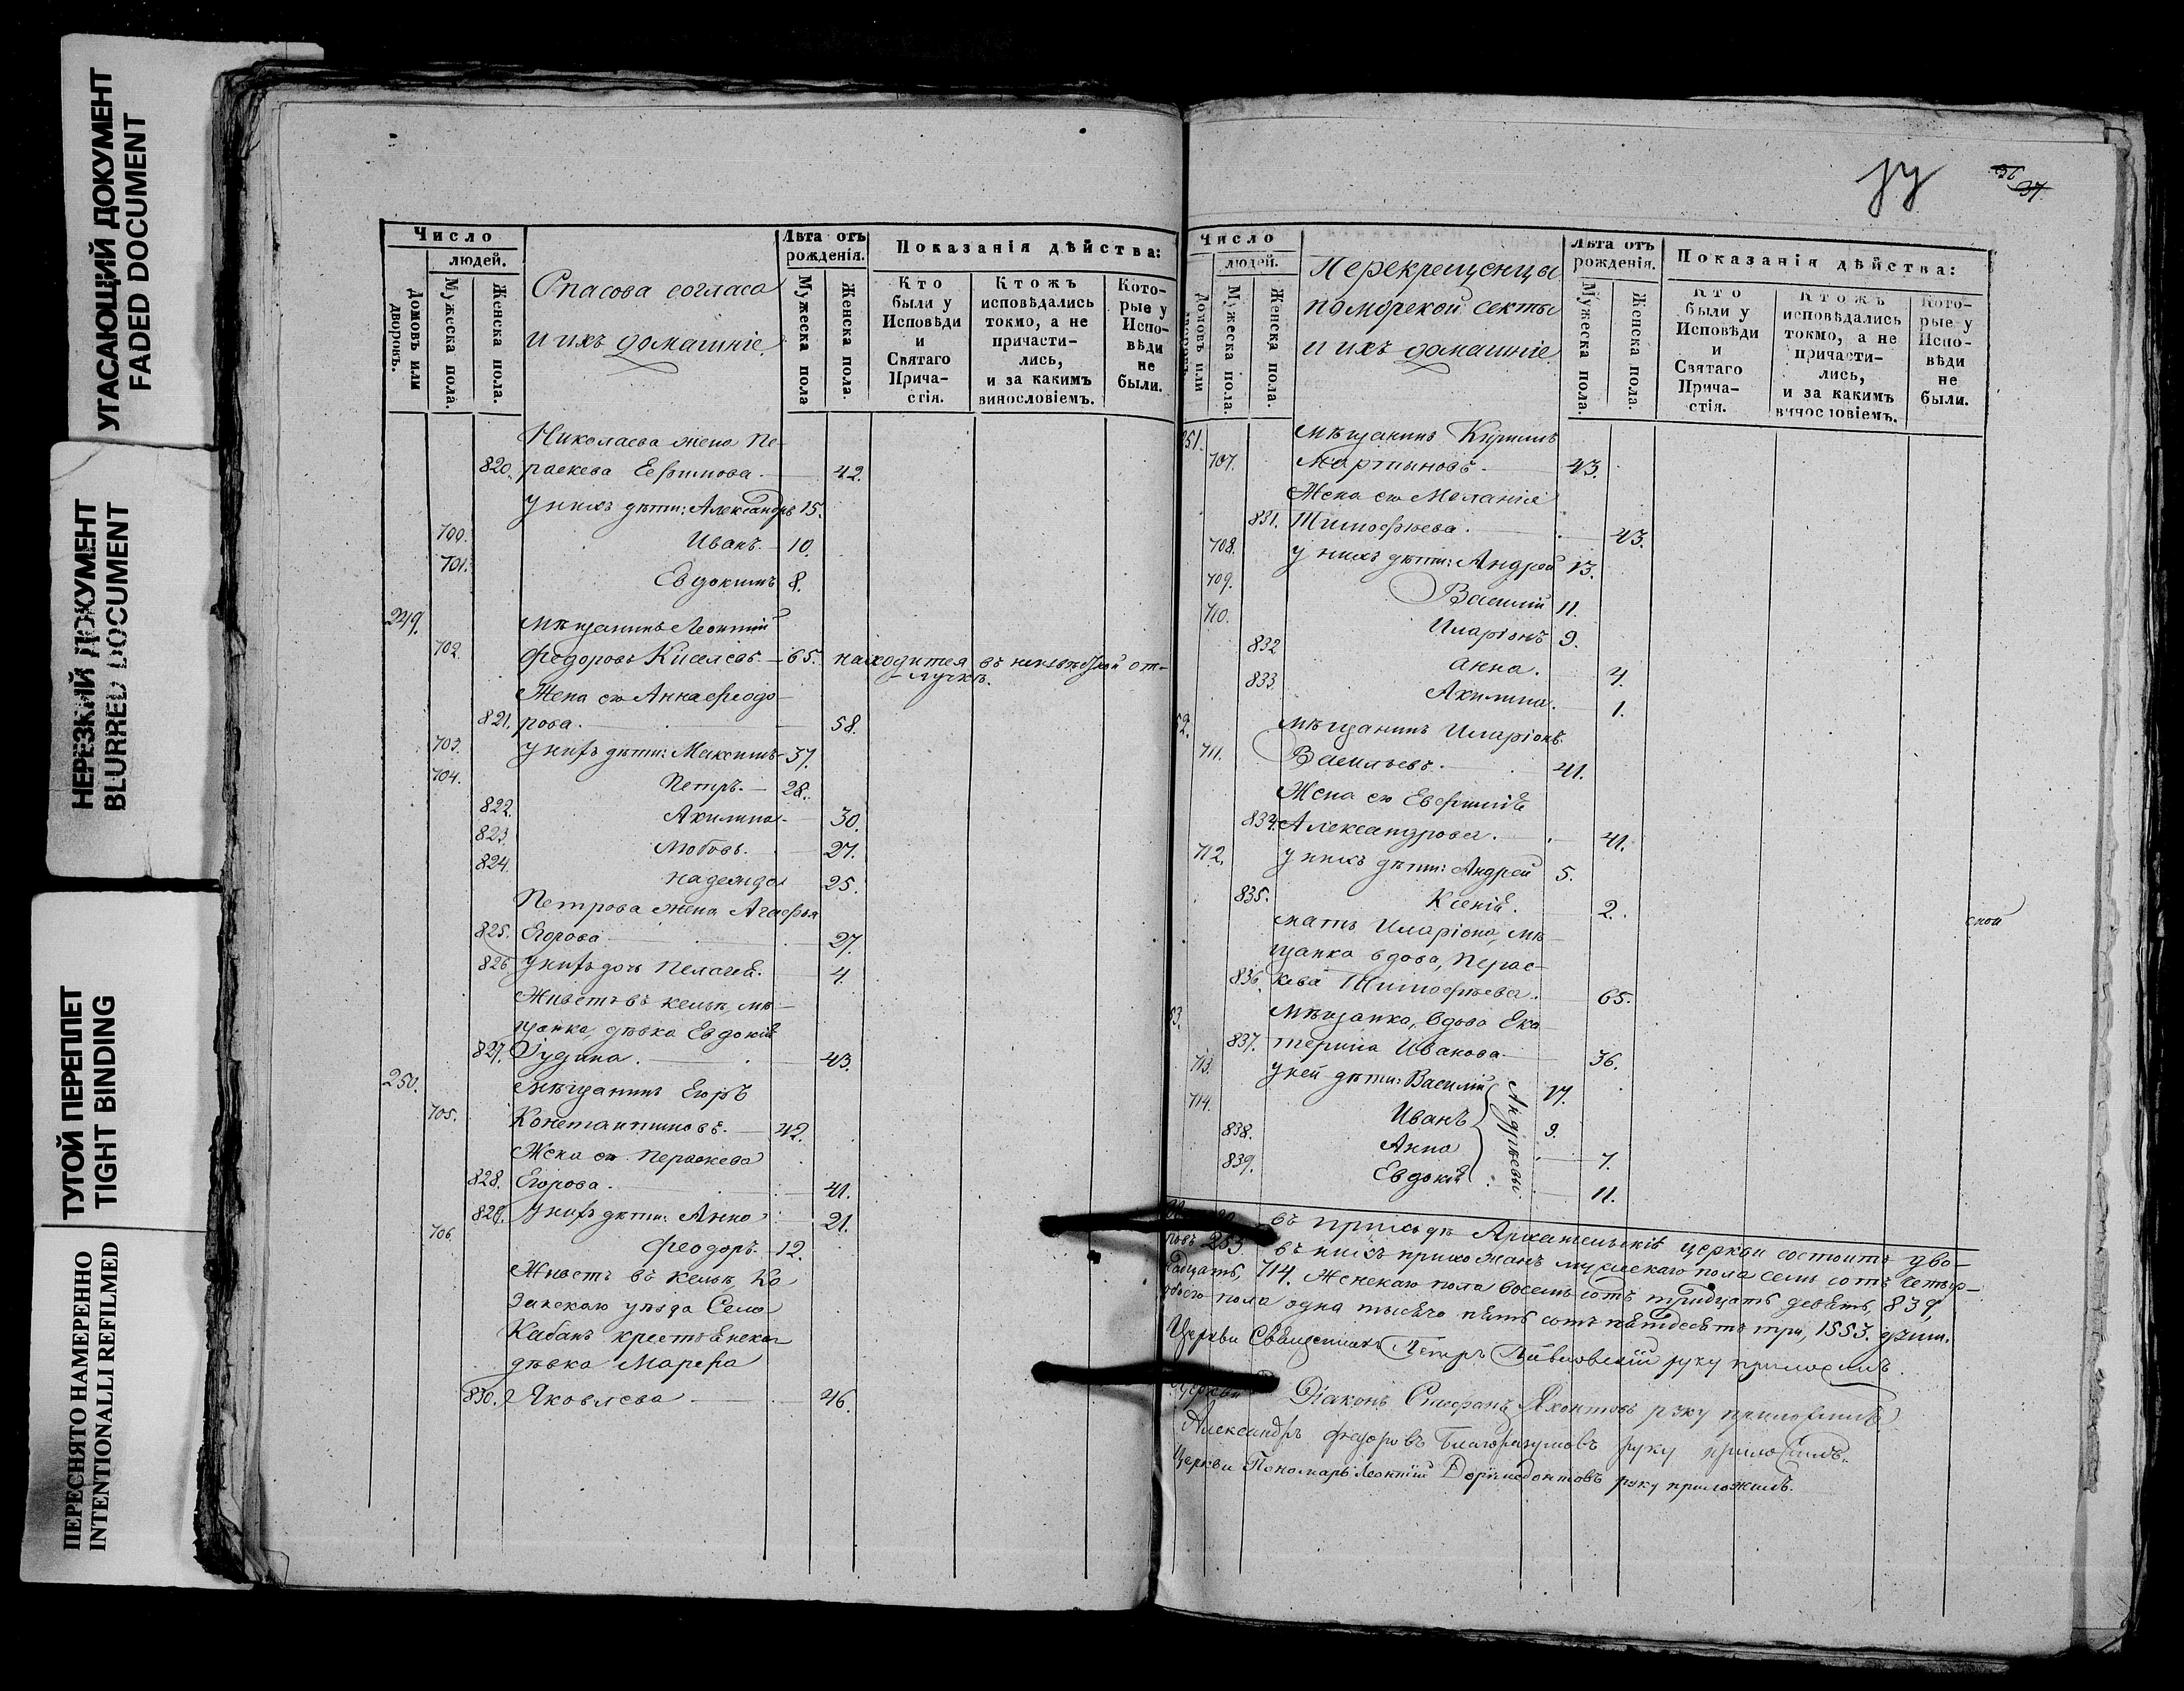 УГАСАЮЩИЙ ДОКУМЕНТ
FADED DOCUMENT
НЕРЕЗКИЙ ДОКУМЕНТ
BLURRED DOCUMENT
ТУГОЙ ПЕРЕПЛЕТ
TIGHT BINDING
ПЕРЕСНЯТО НАМЕРЕННО
INTENTIONALLI REFILMED
Число
людей.
Домовъ или дворовъ.
Мужеска пола.
Женска пола.
Спасова согласа
и ихъ домашніе.
Лѣта отъ рожденія.
Мужеска пола
Женска пола.
Показанія дѣйства:
Кто были у Исповѣди и Святаго Прича-стія.
Ктожъ исповѣдались токмо, а не причасти-лись, и за какимъ винословіемъ.
Кото-рые у Испо-вѣди не были.
Николаева жена Пе-
820. раскева Ефимова. 42.
у нихъ дѣти: Александръ 15.
700. Иванъ. 10.
701. Евдокимъ 8.
249. Мѣщанинъ Леонтий
702. Федоровъ Киселевъ. 65. находится въ неизвѣстной от-
лучкѣ.
Жена его Анна Феодо-
821. рова. 58.
703. у нихъ дѣти: Максимъ 37.
704. Петръ. 28.
822. Акилина. 30.
823. Любовь. 27.
824. Надежда 25.
Петрова жена Агафья
825. Егорова 27.
826 у нихъ дочь Пелагея. 4.
Живетъ въ кельи, мѣ-
щанка, дѣвка Евдокія
827. 43.
250. Мѣщанинъ Егоръ
705. Константиновъ. 42.
Жена его Пераскева
828. Егорова. 41.
829. у нихъ дѣти: Анна 21.
706. Феодоръ. 12.
Живетъ въ кельи, Ка
занскаго уѣзда Села
Кабанъ крестьянская
дѣвка Марфа
830. Яковлева 46.
36
37
Число
людей.
Домовъ или
Мужеска пола.
Женска пола.
Перекрещенцы
поморской секты
и ихъ домашніе
Лѣта отъ рожденія.
Мужеска пола.
Женска пола.
Показанія дѣйства:
Кто были у Исповѣди и Святаго Прича-стія.
Ктожъ исповѣдались токмо, а не причасти-лись, и за какимъ винословіемъ.
Кото-рые у Испо-вѣди не были.
251. Мѣщанинъ Кирилъ
707. Мартыновъ. 43.
Жена его Меланія
831. Тимофѣева. 43.
708. у нихъ дѣти: Андрей 13.
709. Василий 11.
710. Иларіонъ 9.
832 Анна. 4.
833. Акилина. 1.
52. Мѣщанинъ Иларіонъ
711. Васильевъ. 41.
Жена его Евфимія
834. Александрова. 41.
712. у нихъ дѣти: Андрей 5.
835. Ксенія. 2.
мать Иларіона, мѣ-
щанка вдова, Перас-
836. кева Тимофѣева. 65.
53. Мѣщанка, вдова Ека
837. терина Иванова. 36.
713. у ней дѣти: Василий 17.
714. Иванъ 9.
838. Анна 7.
839. Евдокія 11.
Андреевы
ской
въ приходѣ Архангельскія церкви состоитъ дво-
ровъ 253. въ нихъ прихожанъ мужескаго пола семь сотъ четыр-
надцать, 714. Женскаго пола восемь сотъ тридцать девять, 839,
обоего пола одна тысяча пять сотъ пятдесятъ три, 1553. душ.
Церкви Священникъ Петръ руку приложилъ.
Церкви Діаконъ Стефанъ Яхонтовъ руку приложилъ
Александръ Федоровъ Благоразумовъ руку приложилъ.
Церкви Пономарь Леонтій Доримедонтовъ руку приложилъ.